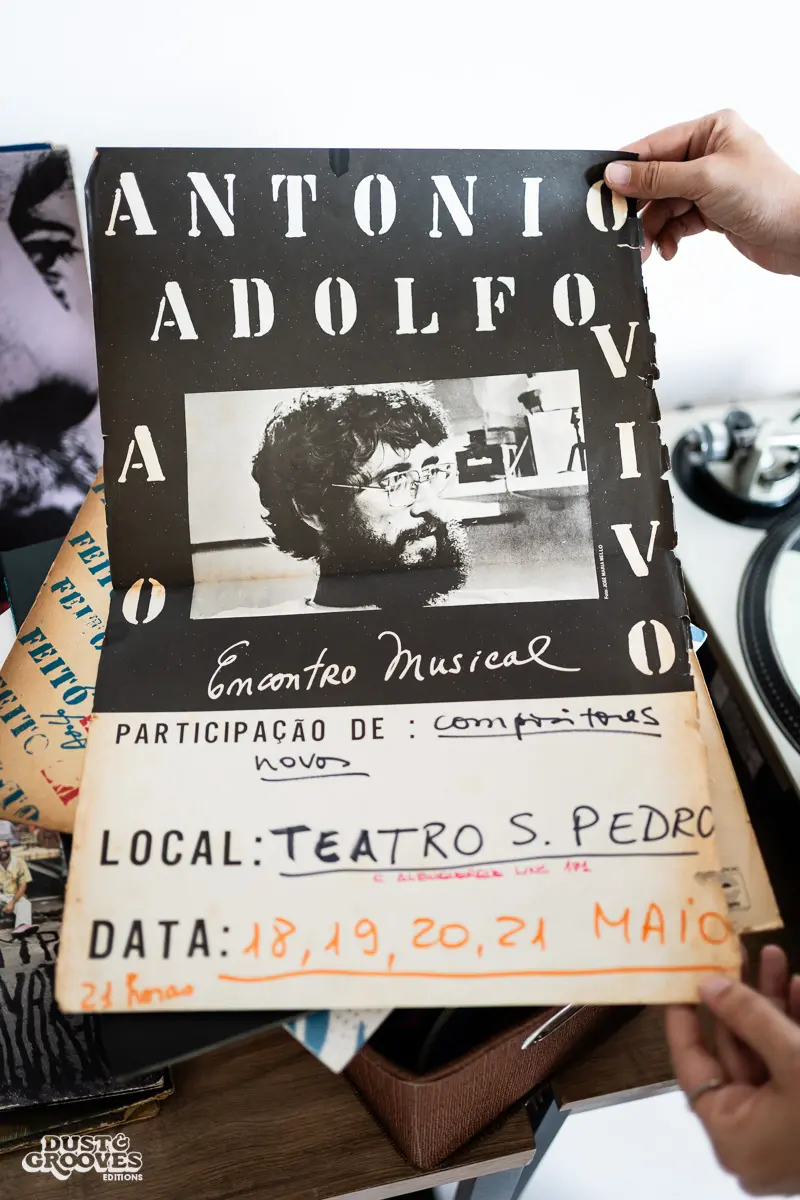 ANTONIO
ADOLFO
AO VIVO
Foto: JOSÉ MARIA MELLO
Encontro Musical
PARTICIPAÇÃO DE : compositores
novos
LOCAL: TEATRO S. PEDRO
ALBUQUERQUE LINS 171
DATA: 18, 19, 20, 21 MAIO
21 horas
FEITO
FEITO
FEITO
DUST &
GROOVES
EDITIONS